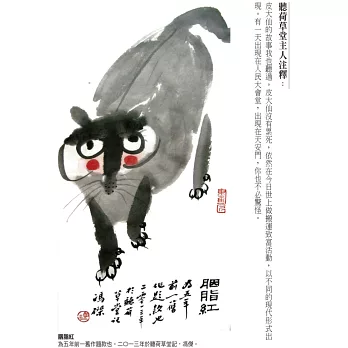 聽荷草堂主人注釋：
皮大仙的故事我也聽過，皮大仙沒有罢死，依然在今日世上做搬運致富活動，以不同的現代形式出
現，有一天出現在人民大會堂，出現在天安門，你也不必驚怪。
胭脂紅
為五年
前一舊
作題款也
二〇一三年
於聽荷
草堂記
馮傑
胭脂紅
為五年前一舊作題款也，二〇一三年於聽荷草堂記，馮傑。